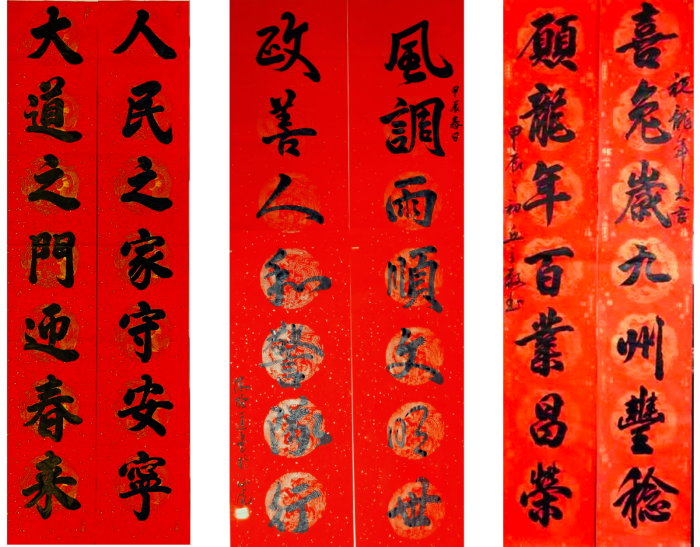 人民之家守安寧
大道之門迎春来
風調雨順文明世
甲辰春日
政善人和警行
祝龍年大吉
喜兔歲九州豐稔
願龍年百業昌榮
甲辰之初